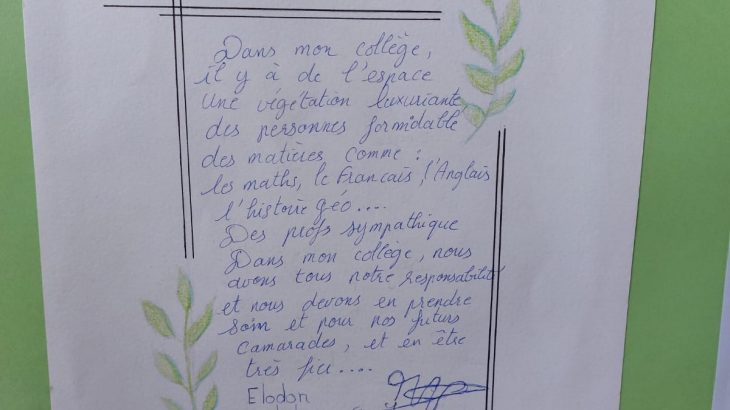 Dans mon collège,
il y à de l'espace
une végétation luxuriante
des personnes formidable
des matières comme :
les maths, le Francais, l'Anglais
l'histoire géo....
Des profs sympathique
Dans mon collège, nous
avons tous notre responsabilité
et nous devons en prendre
soin et pour nos futurs
camarades, et en être
très fier....
Elodon